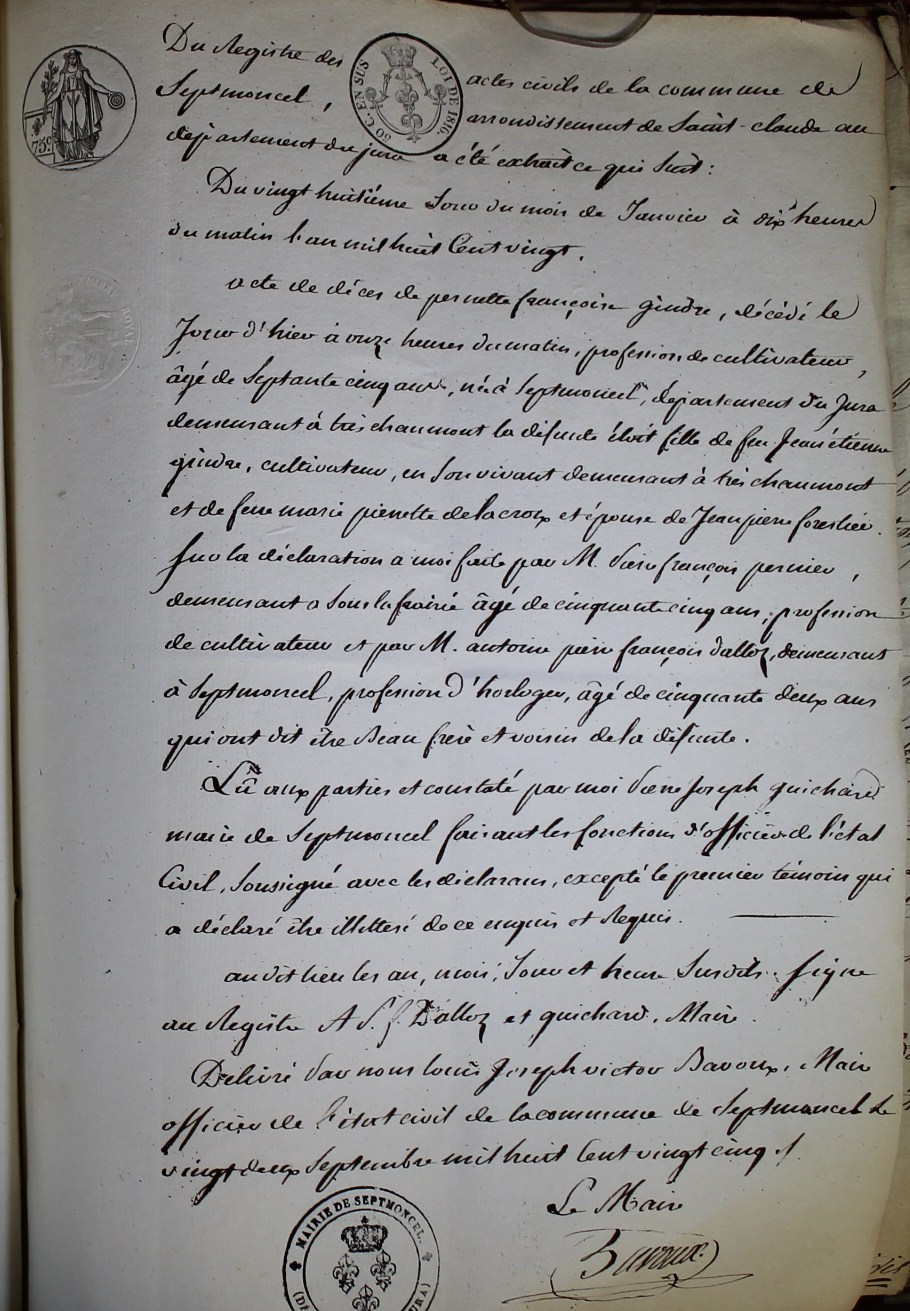 Du Registre des actes civils de la commune de
Septmoncel, arrondissement de Saint-claude au
département du jura a été extrait ce qui suit :
50 C. EN SUS
LOI DE 1816.
75c
Du vingt huitième Jour du mois de Janvier à dix heures
du matin l'an mil huit Cent vingt.
acte de décès de pernette françoise gindre, décédé le
Jour d'hier à onze heures du matin, profession de cultivateur,
âgé de Septante cinq ans, né à Septmoncel, département du Jura
demeurant à très chaumont la défunte étoit fille de feu Jean étienne
gindre, cultivateur, en son vivant demeurant à très chaumont
et de feue marie pierrette delacroix et épouse de Jean pierre forestier.
Sur la déclaration a moi faite par M. Pierre françois pernier,
demeurant a Sous la frairié âgé de cinquante cinq ans, profession
de cultivateur et par M. antoine pierre françois Dalloz, demeurant
à Septmoncel, profession d'horloger, âgé de cinquante deux ans
qui ont dit être Beau frère et voisin de la défunte.
Lû aux parties et constaté par moi Pierre Joseph guichard
maire de Septmoncel faisant les fonctions d'officier de l'état
Civil, Soussigné avec les déclarans, excepté le premier témoin qui
a déclaré être illettré de ce enquis et Requis.
audit lieu les an, mois, Jour et heure Susdits. Signé
au Registre A P. f. Dalloz et guichard, Maire.
Délivré Par nous louis Joseph victor Bavoux, Maire
officier de l'état civil de la commune de Septmoncel le
vingt deux Septembre mil huit Cent vingt cinq
Le Maire
Bavoux
MAIRIE DE SEPTMONCEL